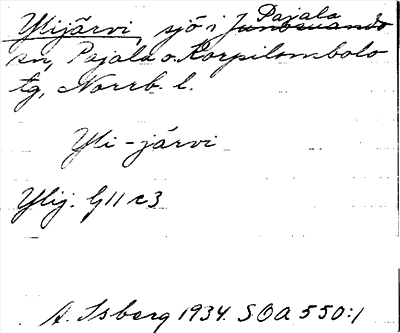 Ylijärvi, sjö i Pajala Junosuando
sn, Pajala o. Korpilombolo
tg, Norrb. l.
Yli-järvi
Ylij. G11 c3
A. Isberg 1934. SOA 550:1